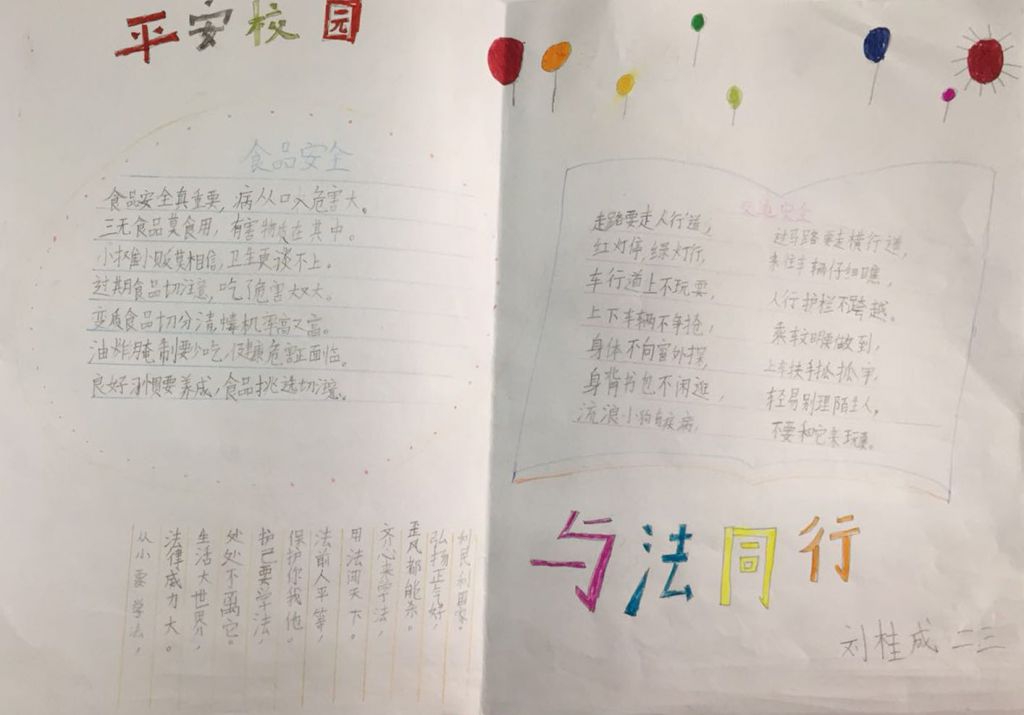 平安校园
食品安全
食品安全真重要,病从口入危害大。
三无食品莫食用,有害物质在其中。
小摊小贩莫相信,卫生更谈不上。
过期食品切注意,吃了危害大大。
变质食品切分清,情机率高又高。
油炸腌制要少吃,健康危害正面临。
良好习惯要养成,食品挑选切注意。
从小要学法,
法律威力大。
生活大世界,
处处不离它。
护己要学法,
保护你我他。
法前人平等,
用法闯天下。
齐心来学法,
歪风都能杀。
弘扬正气好,
利民利国家。
交通安全
走路要走人行道,
过马路要走横行道,
红灯停,绿灯行,
来往车辆仔细瞧,
车行道上不玩耍,
人行护栏不跨越。
上下车辆不争抢,
乘车文明要做到,
身体不向窗外探,
上车扶手抓抓牢,
身背书包不闲逛,
轻易别理陌生人,
流浪小狗有疾病,
不要和它来玩耍。
与法同行
刘桂成 二三